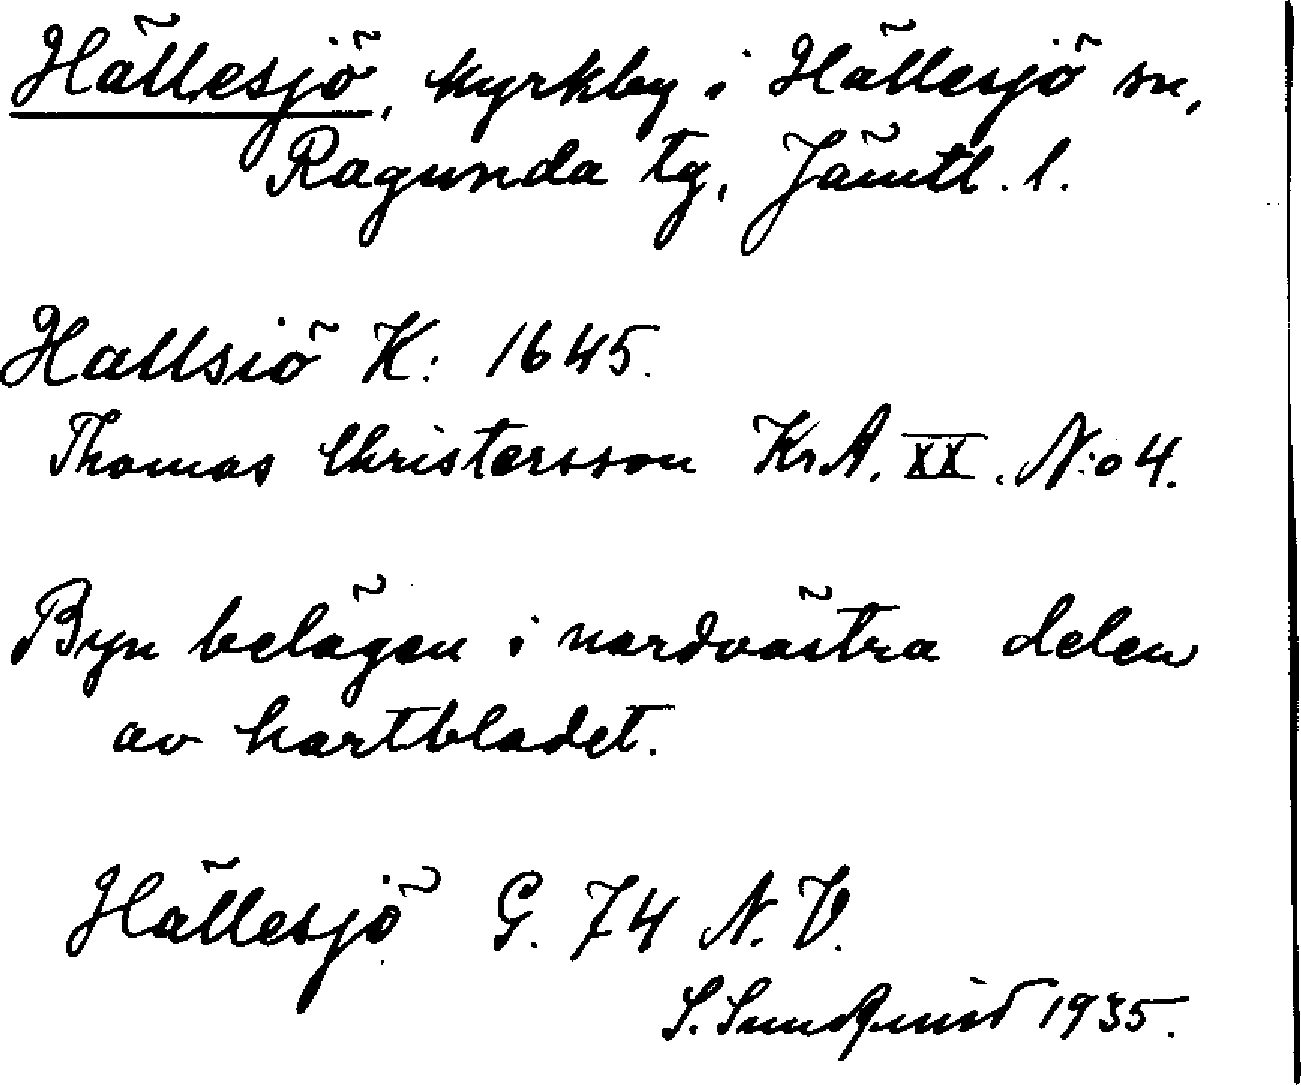 Hällesjö, kyrkby i Hällesjö sn,
Ragunda tg, Jämtl. l.
Hallsiö K: 1645.
Thomas Christersson Kr.A. XX. N:o 4.
Byn belägen i nordvästra delen
av kartbladet.
Hällesjö G. 74 N.V.
S. Sundqvist 1935.